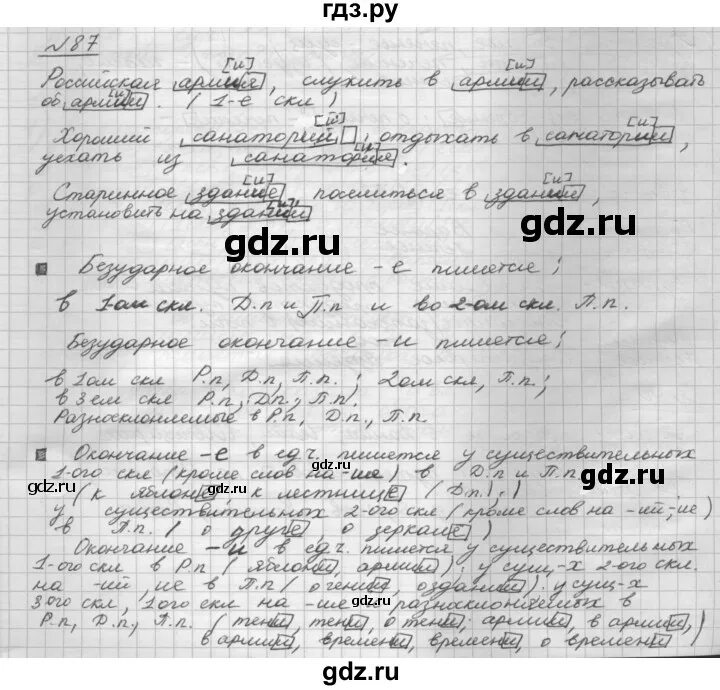 гдз.ру
№87
[и] [и]
Российская армия, служить в армии, рассказывать
об армии. (1-е скл)
[и] [и] [и]
Хороший санаторий, отдыхать в санатории,
уехать из санатория.
[и] [и]
Старинное здание, поселиться в здании,
установить на здании
gdz.ru gdz.ru
Безударное окончание -е пишется;
в 1ом скл. Д.п и П.п и во 2-ом скл. П.п.
Безударное окончание -и пишется;
gdz.ru
в 1ом скл Р.п, Д.п, П.п.; 2ом скл, П.п;
в 3ем скл Р.п, Д.п., П.п.
Разносклоняемые в Р.п, Д.п., П.п.
Окончание -е в ед.ч. пишется у существительных
1-ого скл (кроме слов на -ия) в Д.п и П.п
gdz.ru
(к яблоне, к лестнице (Д.п).)
у существительных 2-ого скл (кроме слов на -ий; ие)
в П.п. (о друге о зеркале)
Окончание -и в ед.ч. пишется у существительных
1-ого скл в Р.п (яблони, армии): у сущ-х 2-ого скл.
на -ий, ие в П.п (о гении, о здании): у сущ-х
3ого скл, 1ого скл на -ия и разносклоняемых в
Р.п, Д.п., П.п. (тени, тени, о тени; армии, в армии,
в армии, времени, времени, о времени)
gdz.ru gdz.ru
gdz.ru